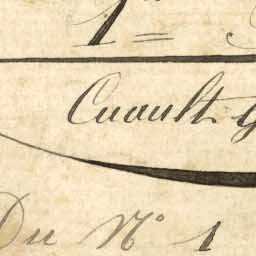 1
Cuault
Du N° 1